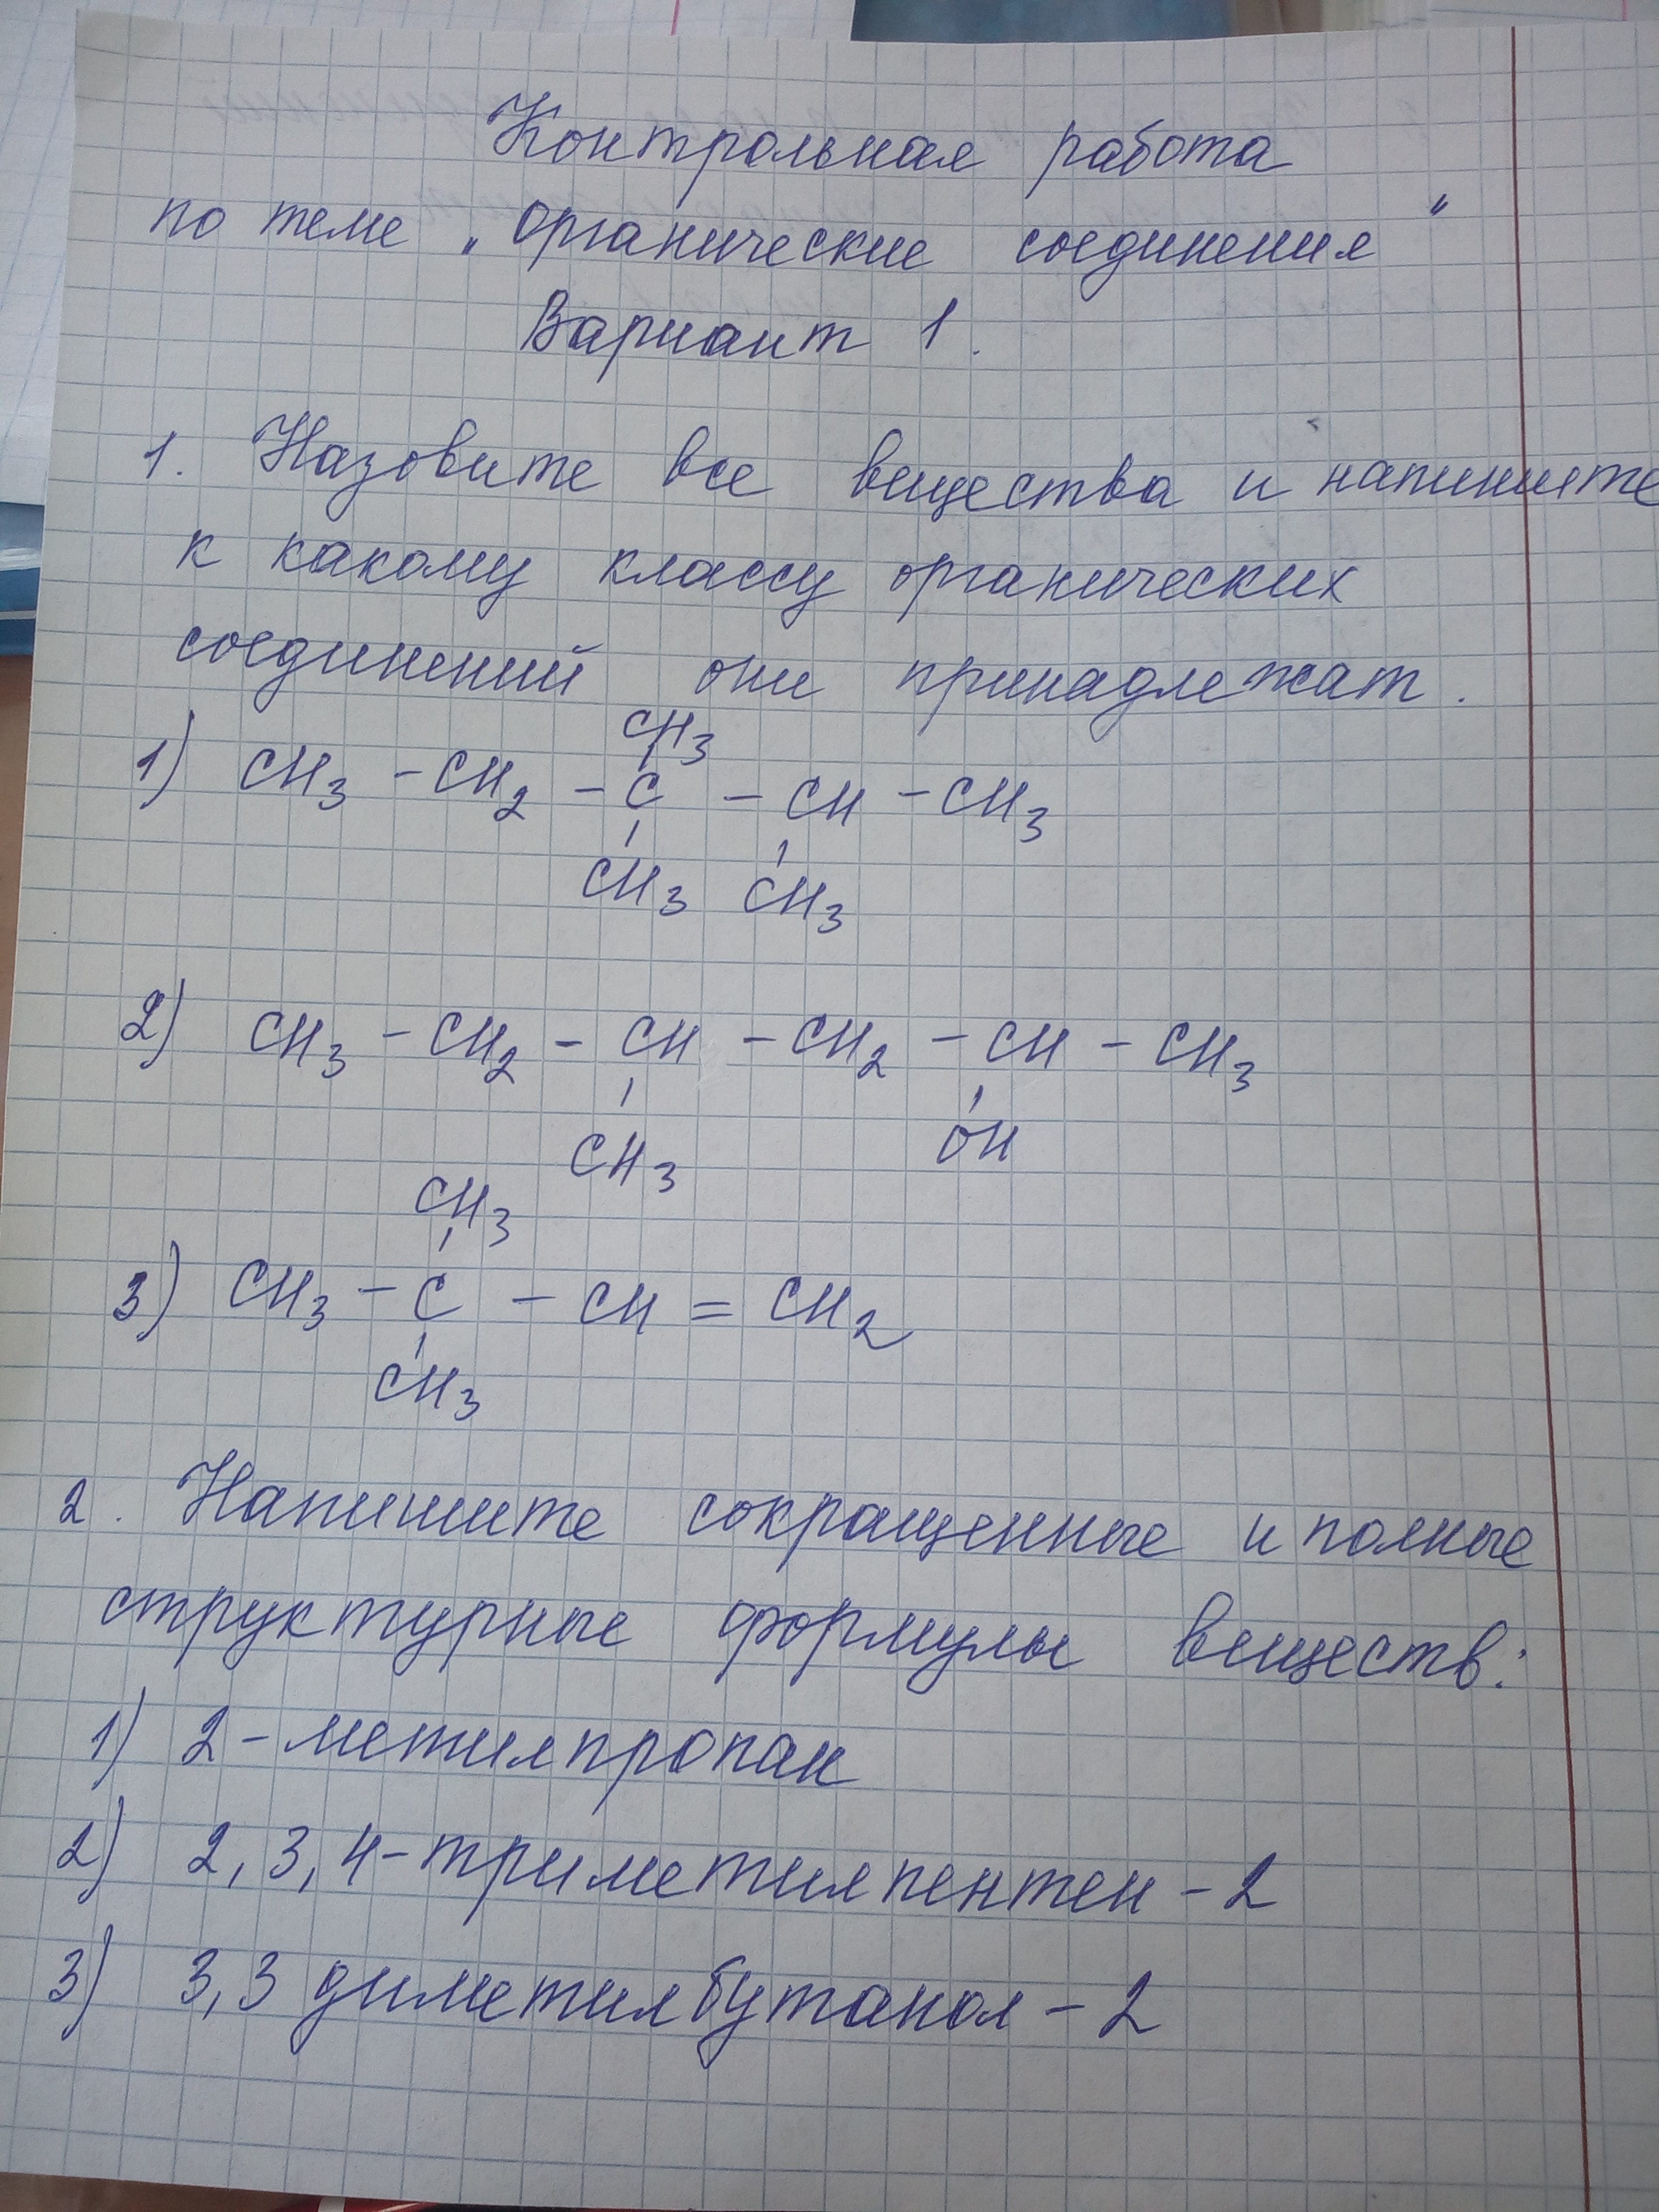 Контрольная работа
по теме „Органические соединения"
Вариант 1.
1. Назовите все вещества и напишите
к какому классу органических
соединений они принадлежат.
CH3
1) CH3 - CH2 - C - CH - CH3
CH3 CH3
2) CH3 - CH2 - CH - CH2 - CH - CH3
CH3 OH
CH3
3) CH3 - C - CH = CH2
CH3
2. Напишите сокращенные и полные
структурные формулы веществ:
1) 2-метилпропан
2) 2,3,4-триметилпентен-2
3) 3,3 диметилбутанол-2